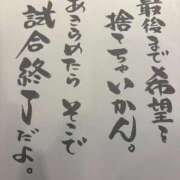 最後まで希望を
捨てちゃいかん。
あきらめたら そこで
試合終了だよ。